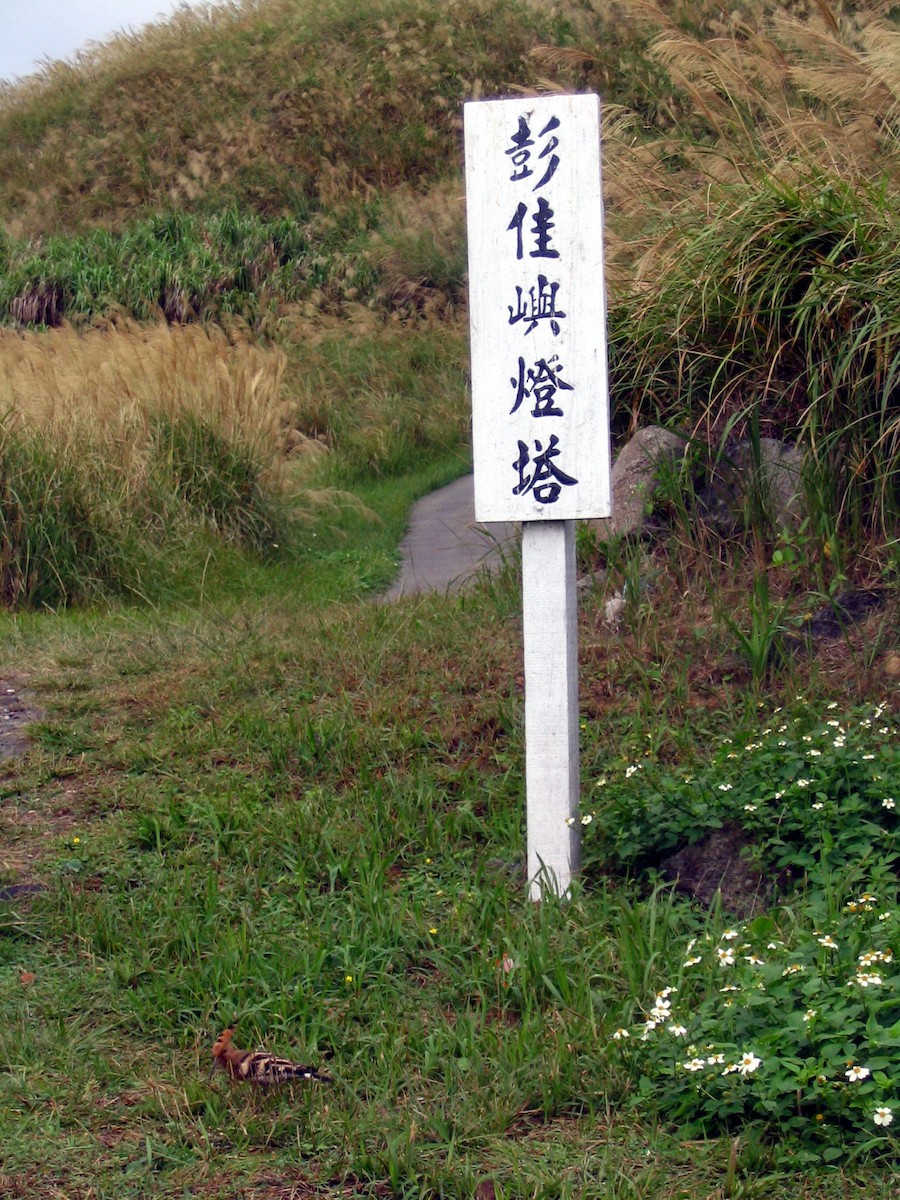 彭佳嶼燈塔